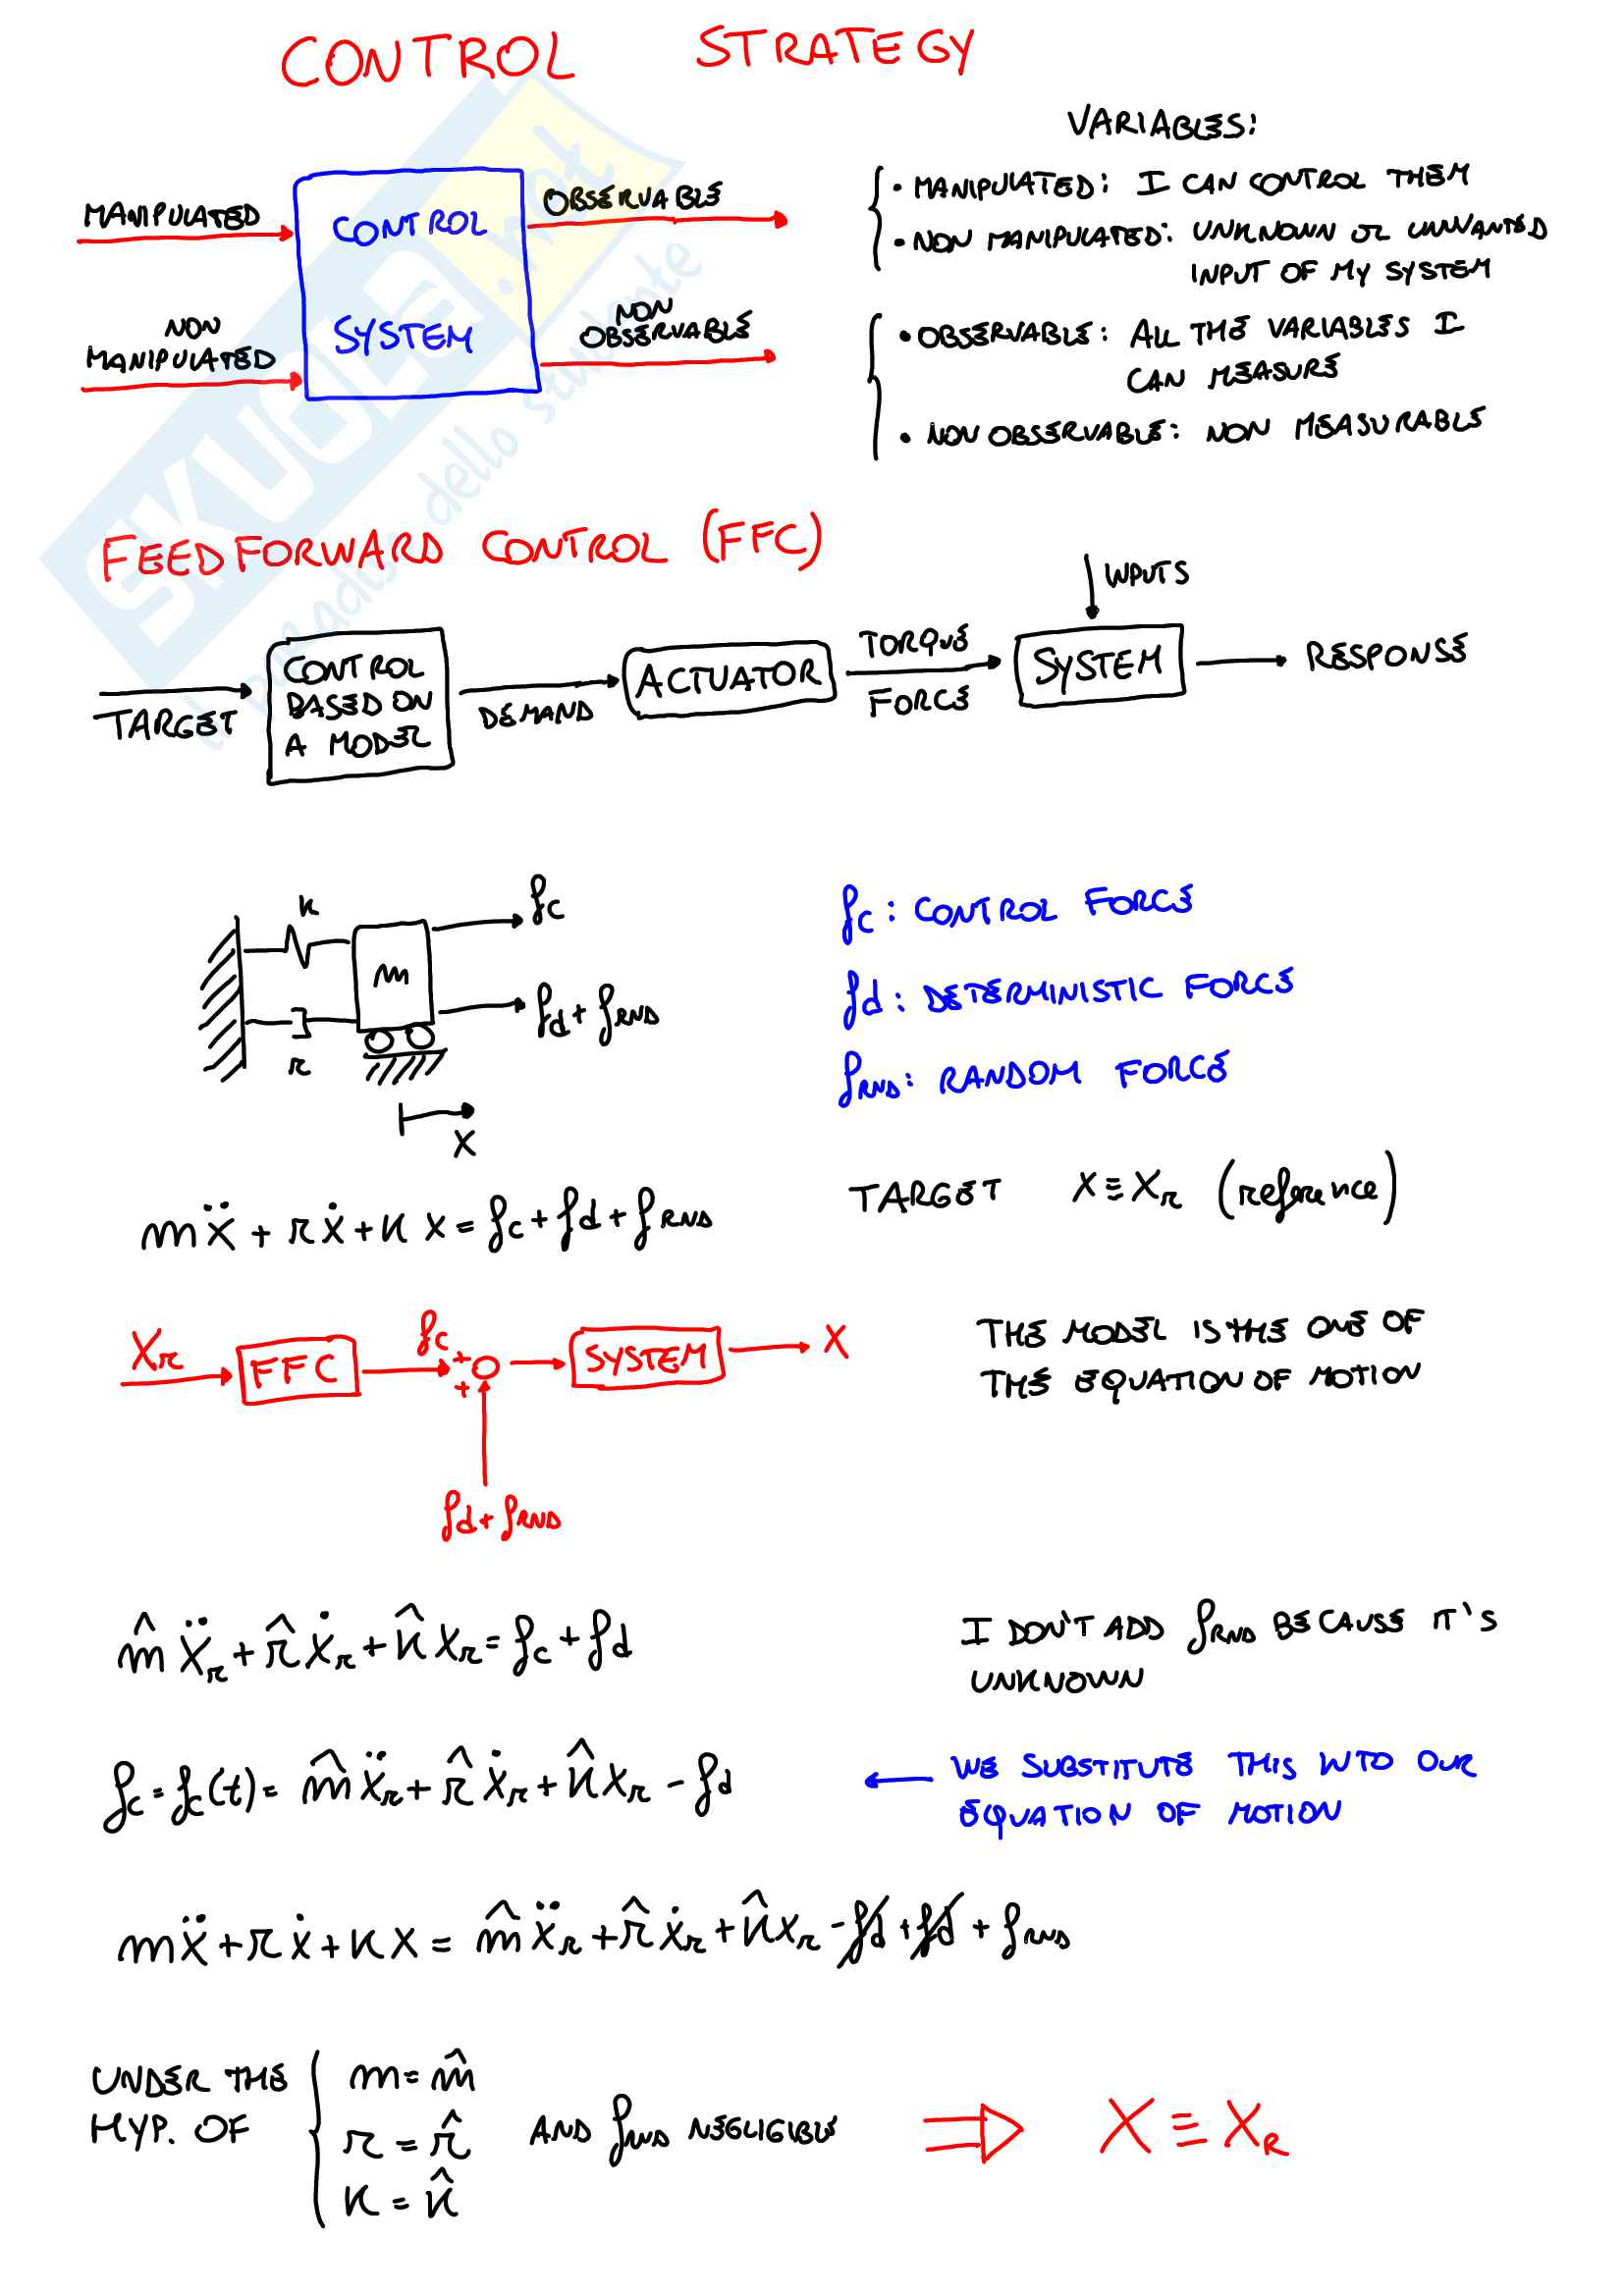 CONTROL STRATEGY
VARIABLES:
MANIPULATED
CONTROL
SYSTEM
OBSERVABLE
NON
MANIPULATED
NON
OBSERVABLE
• MANIPULATED: I CAN CONTROL THEM
• NON MANIPULATED: UNKNOWN OR UNWANTED
INPUT OF MY SYSTEM
• OBSERVABLE: ALL THE VARIABLES I
CAN MEASURE
• NON OBSERVABLE: NON MEASURABLE
SKUOLA.net
dello studente
FEEDFORWARD CONTROL (FFC)
INPUTS
TARGET
CONTROL
BASED ON
A MODEL
DEMAND
ACTUATOR
TORQUE
FORCE
SYSTEM
RESPONSE
k
m
r
fc
fd + fRND
x
fc: CONTROL FORCE
fd: DETERMINISTIC FORCE
fRND: RANDOM FORCE
mẍ + rẋ + k x = fc + fd + fRND
TARGET x ≡ xr (reference)
xr
FFC
fc
+
+
SYSTEM
x
fd + fRND
THE MODEL IS THE ONE OF
THE EQUATION OF MOTION
m̂ ẍr + r̂ ẋr + k̂ xr = fc + fd
I DON'T ADD fRND BECAUSE IT'S
UNKNOWN
fc = fc(t) = m̂ ẍr + r̂ ẋr + k̂ xr - fd
← WE SUBSTITUTE THIS INTO OUR
EQUATION OF MOTION
mẍ + rẋ + kx = m̂ ẍr + r̂ ẋr + k̂ xr - fd + fd + fRND
UNDER THE
HYP. OF
m = m̂
r = r̂
k = k̂
AND fRND NEGLIGIBLE
⇒ X ≡ XR